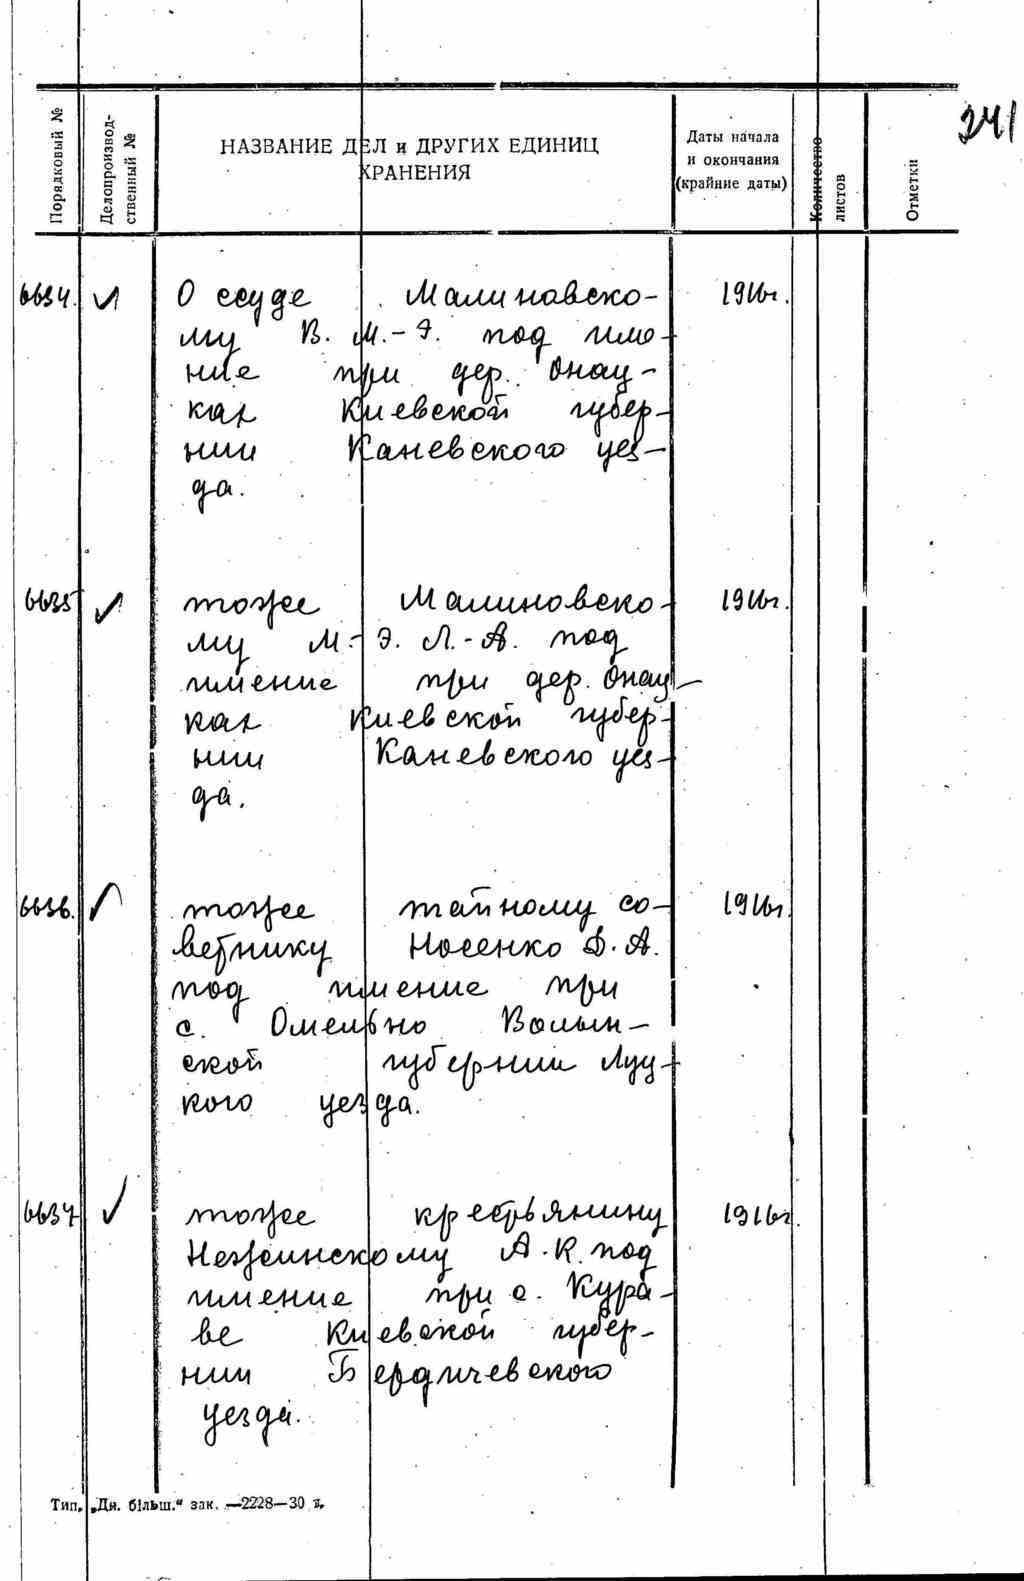 241
Порядковый №
Делопроизвод-
ственный №
НАЗВАНИЕ ДЕЛ и ДРУГИХ ЕДИНИЦ
ХРАНЕНИЯ
Даты начала
и окончания
(крайние даты)
Количество
листов
Отметки
6634. О ссуде Малиновско- 1916г.
му В. М.-Э. под име-
ние при дер. Онац-
ках Киевской губер-
нии Каневского уез-
да.
6635 тоже Малиновско- 1916г.
му М.-Э. Л.-А. под
имение при дер. Онац-
ках Киевской губер-
нии Каневского уез-
да.
6636. тоже тайному со- 1916г.
ветнику Носенко Д.А.
под имение при
с. Омельно Волын-
ской губернии Луц-
кого уезда.
6637 тоже крестьянину 1916г.
Нежинскому А.К. под
имение при с. Кура-
ве Киевской губер-
нии Бердичевского
уезда.
Тип. „Дн. більш.“ зак. —2228—30 т.